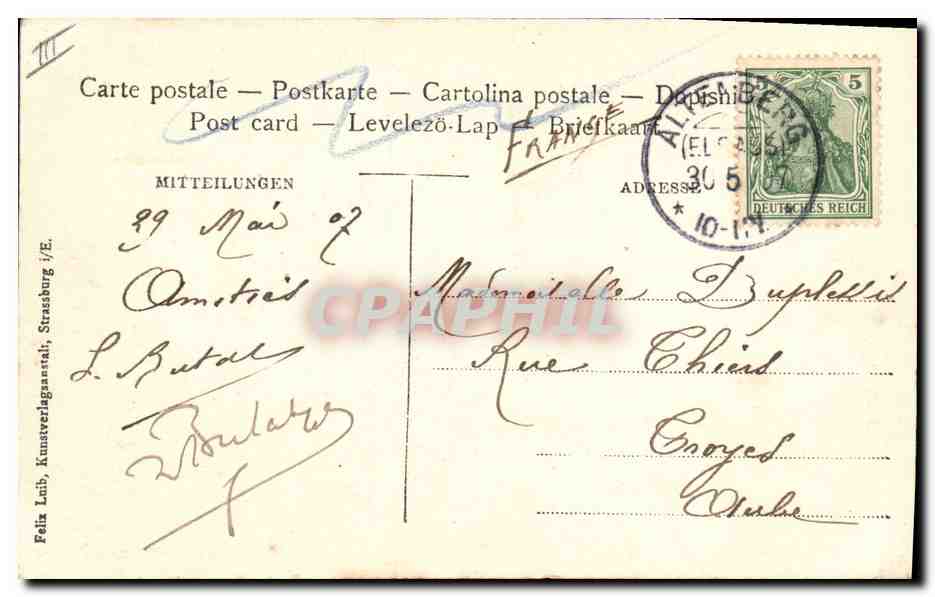 III
Carte postale — Postkarte — Cartolina postale — Dopisni
Post card — Levelező-Lap — Briefkaart
FRANCE
MITTEILUNGEN
ADRESSE
ALTENBERG
(ELSASS)
30 5 07
* 10-11V. *
5
DEUTSCHES REICH
29 Mai 07
Amitiés
Mademoiselle Duplessis
Rue Thiers
Troyes
Aube
CPAPHIL
Felix Luib, Kunstverlagsanstalt, Strassburg i/E.